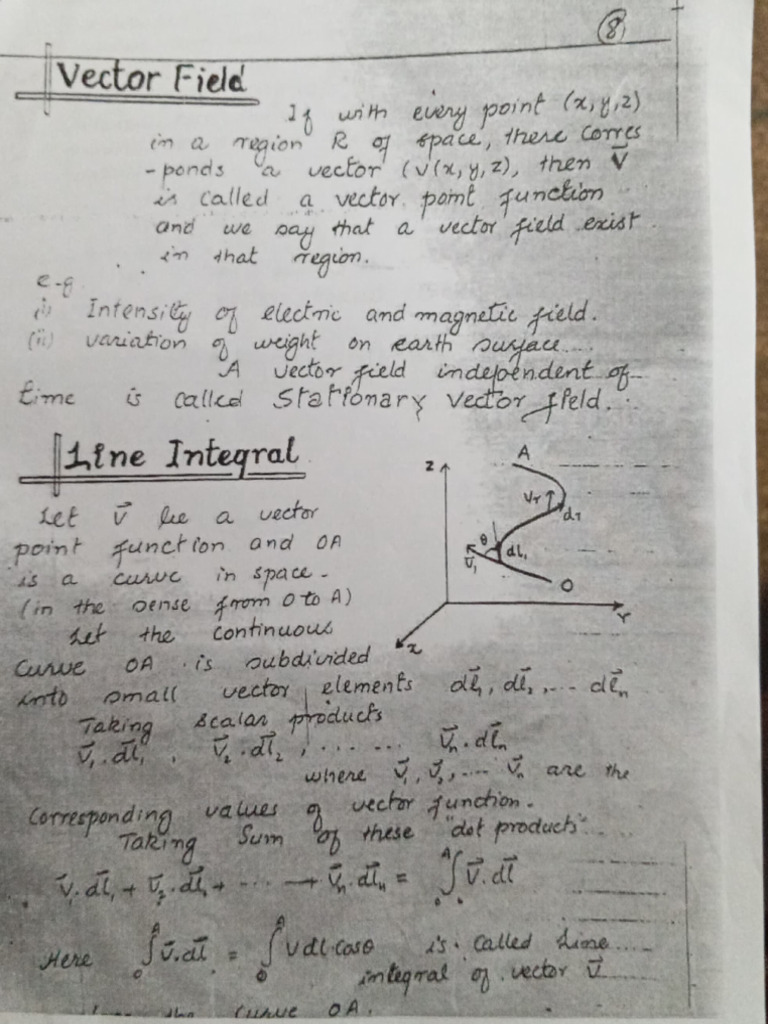 8
Vector Field
If with every point (x,y,z)
in a region R of space, there corres
-ponds a vector (V(x,y,z), then V⃗
is called a vector point function
and we say that a vector field exist
in that region.
e-g
(i) Intensity of electric and magnetic field.
(ii) variation of weight on earth surface....
A vector field independent of
time is called Stationary Vector field.
Line Integral
Let V⃗ be a vector
point function and OA
is a curve in space -
(in the sense from O to A)
Let the continuous
Curve OA is subdivided
into small vector elements dl⃗₁, dl⃗₂, .... dl⃗n
Z
A
θ
V⃗₁
dl₁
O
Y
X
Taking scalar products
V⃗₁.dl⃗₁, V⃗₂.dl⃗₂, ........ V⃗n.dl⃗n
where V⃗₁, V⃗₂, .... V⃗n are the
Corresponding values of vector function.
Taking Sum of these "dot products"
V⃗₁.dl⃗₁ + V⃗₂.dl⃗₁ + ..... + V⃗n.dl⃗n = ∫ₒᴬ V⃗.dl⃗
Here ∫ₒᴬ V⃗.dl⃗ = ∫ₒᴬ V dl cosθ is called Line....
integral of vector V⃗
the curve OA.